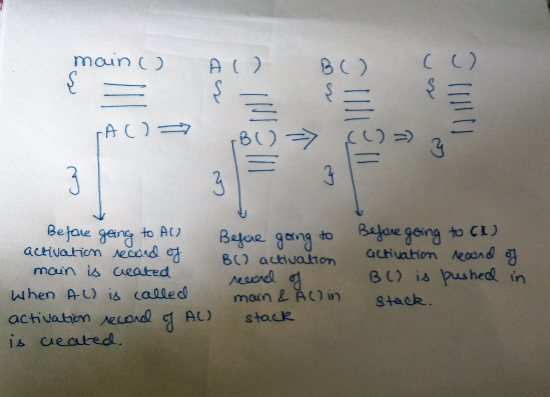 main() A() B() C()
{ { { {
A() ⇒ B() ⇒ C() ⇒
} } } }
Before going to A()
activation record of
main is created
when A() is called
activation record of A()
is created.
Before going to
B() activation
record of
main & A() in
stack
Before going to C()
activation record of
B() is pushed in
stack.